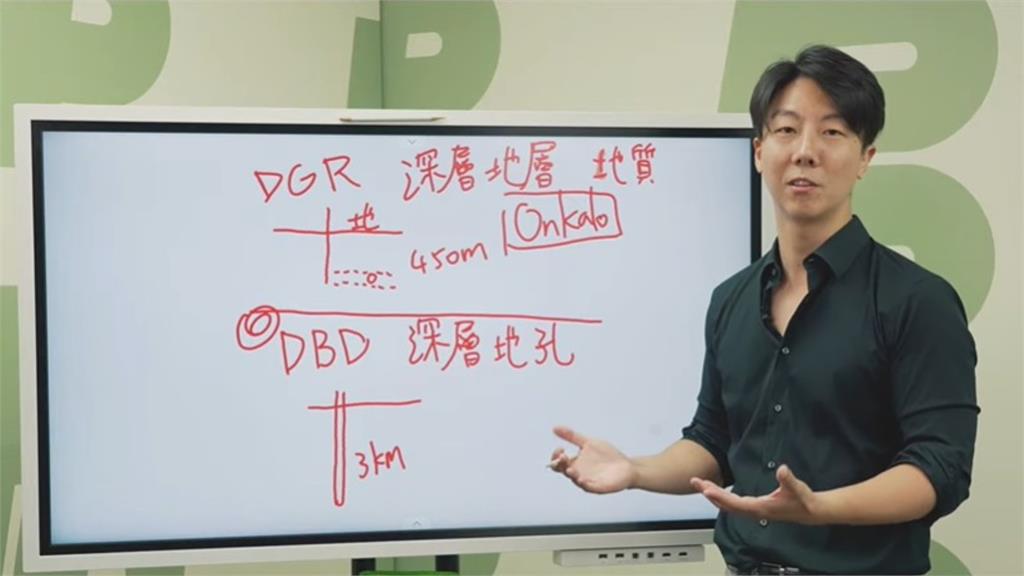 DGR 深層地層 地質
地
Onkalo
450m
DBD 深層地孔
3km